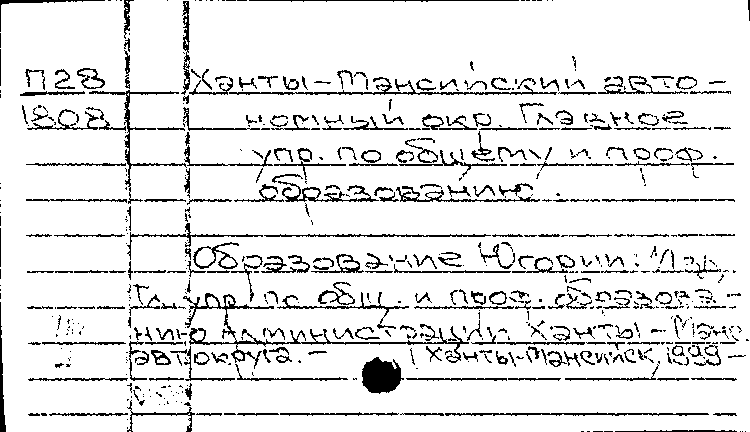 П28 Ханты-Мансийский авто-
1808 номный окр. Главное
упр. по общему и проф.
образованию.
Образование Югории: Изд.
Гл. упр. по общ. и проф. образова-
нию Администрации Ханты-Манс.
авт округа. - Ханты-Мансийск, 1999 -